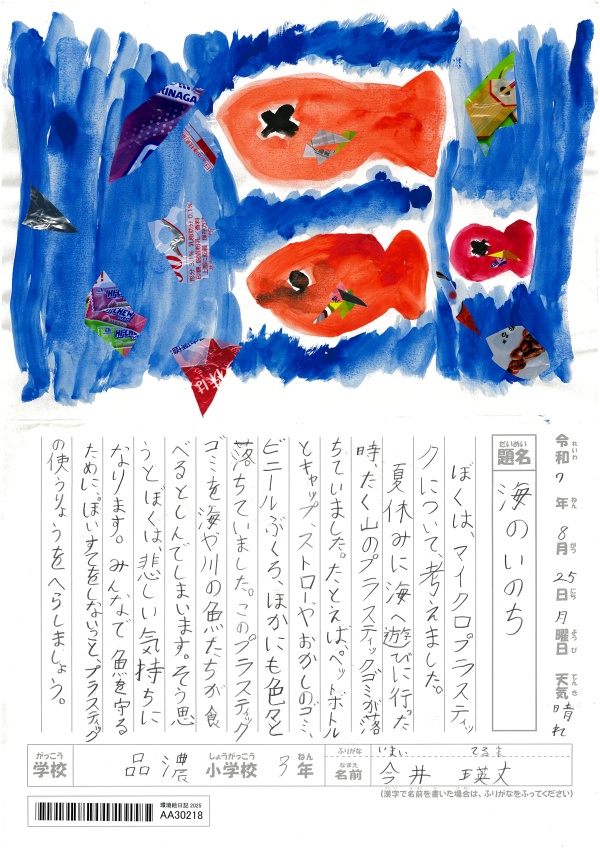 令和7年8月25日月曜日 天気晴れ
れいわ ねん がつ にち ようび てんき
だいめい
題名
海のいのち
ぼくは、マイクロプラスティッ
クについて、考えました。
夏休みに海へ遊びに行った
時、たく山のプラスティックゴミが落
ちていました。たとえば、ペットボトル
とキャップ、ストローやおかしのゴミ、
ビニールぶくろ、ほかにも色々と
落ちていました。このプラスティック
ゴミを海や川の魚たちが食
べるとしんでしまいます。そう思
うとぼくは、悲しい気持ちに
なります。みんなで魚を守る
ために、ぽいすてをしないっこと、プラスティック
の使うりょうをへらしましょう。
がっこう しょうがっこう ねん
学校 品濃 小学校 3年
ふりがな いまい てるま
なまえ
名前 今井 瑛丈
(漢字で名前を書いた場合は、ふりがなをふってください)
環境絵日記 2025
AA30218
HI-CHEW